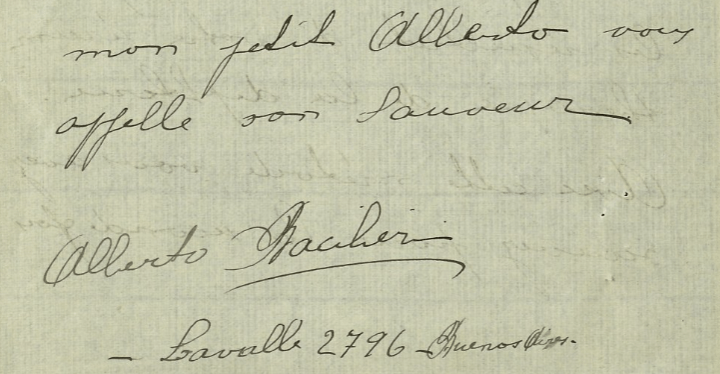 mon petit Alberto vous
appelle son Sauveur
Alberto
- Lavalle 2796 - Buenos Aires.